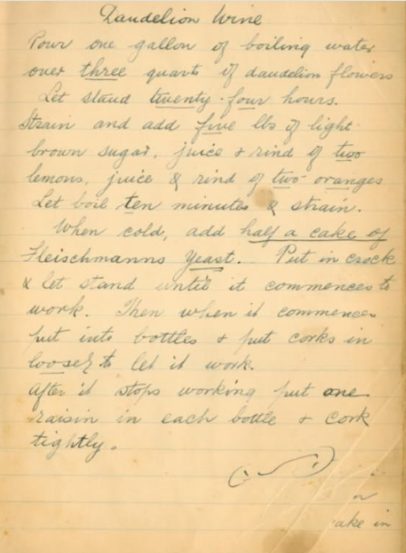 Dandelion Wine
Pour one gallon of boiling water
over three quarts of dandelion flowers
Let stand twenty-four hours.
Strain and add five lbs of light
brown sugar, juice + rind of two
lemons, juice & rind of two oranges
Let boil ten minutes & strain.
When cold, add half a cake of
Fleischmanns yeast. Put in crock
& let stand until it commences to
work. Then when it commences
put into bottles + put corks in
loosely to let it work.
After it stops working put one
raisin in each bottle + cork
tightly.
ake in